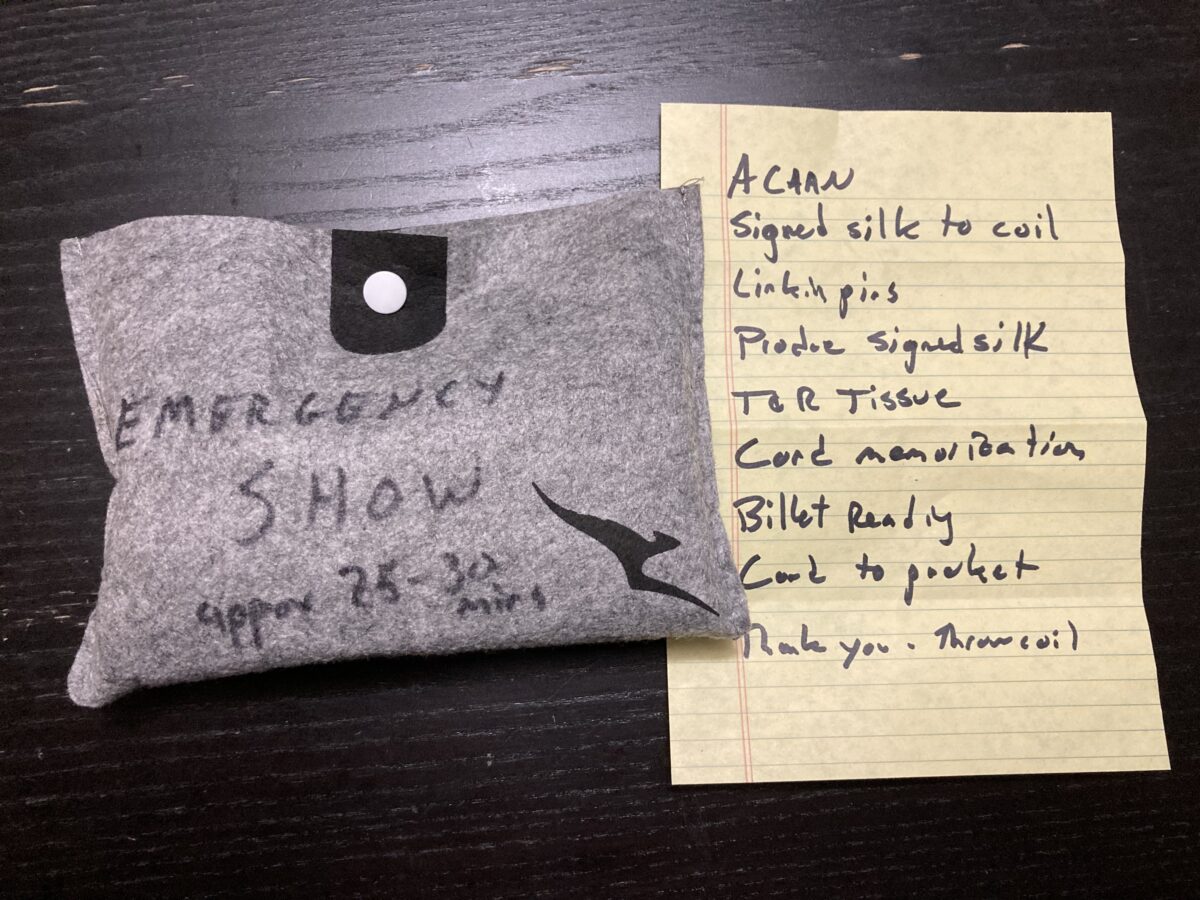 EMERGENCY
SHOW
approx 25-30
mins
ACAAN
Signed silk to coil
Linkin pins
Produce signed silk
T&R Tissue
Card memorization
Billet Reading
Card to pocket
Thank you. Throw coil